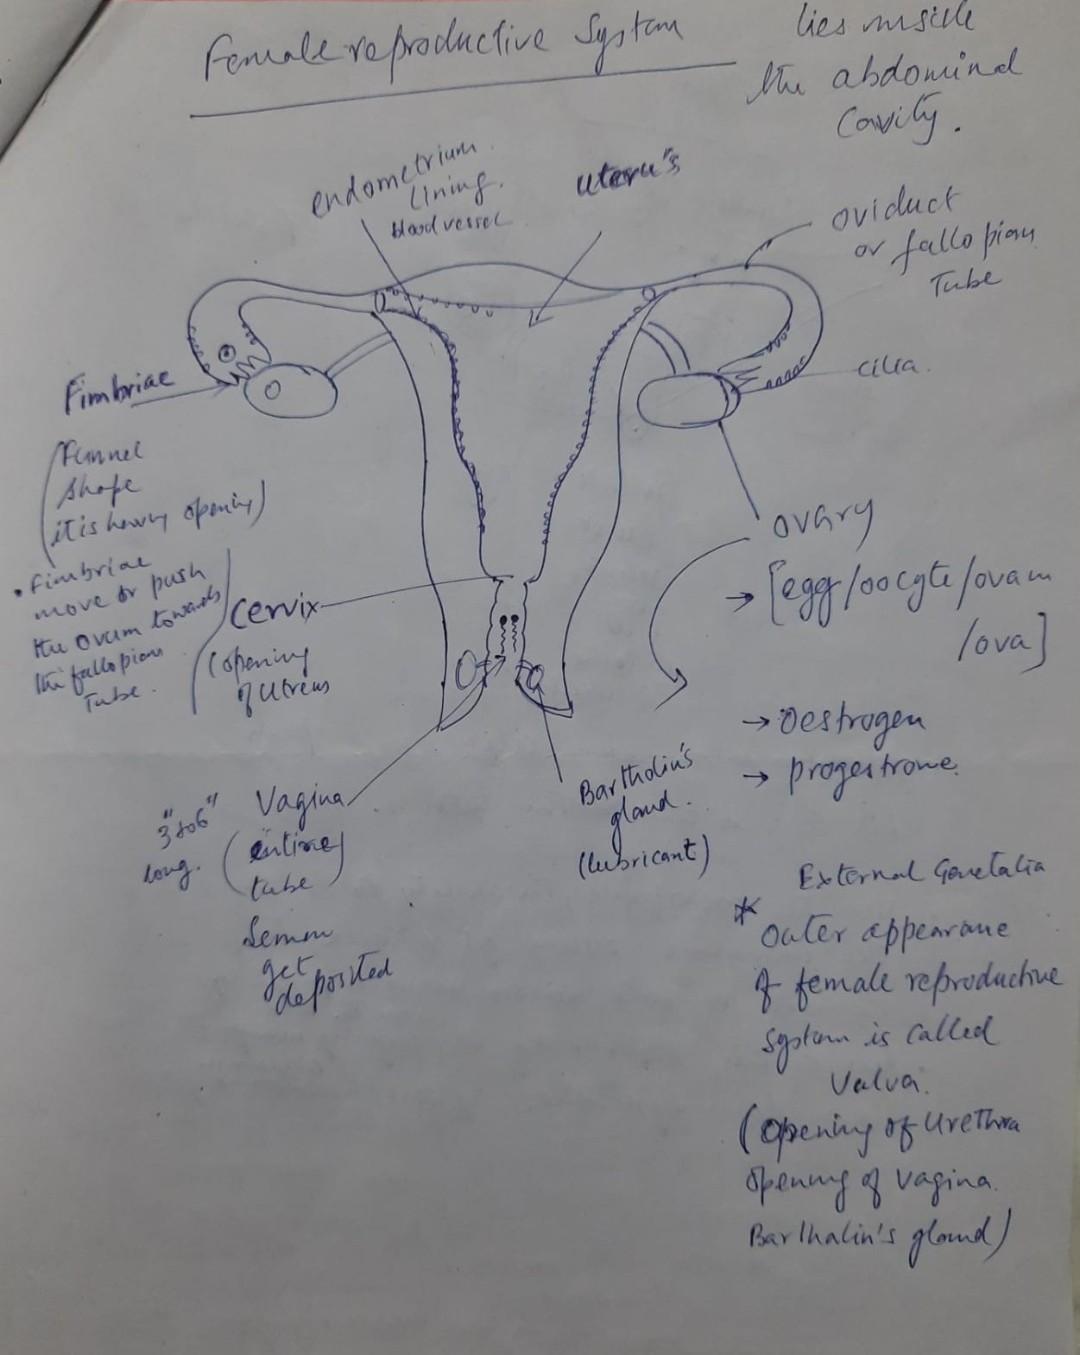 Female reproductive System
lies inside
the abdominal
Cavity.
endometrium.
lining.
blood vessel
uteru's
oviduct
or fallopian
Tube
cilia.
Fimbriae
(Funnel
Shape
it is having opening)
• Fimbriae
move or push
the ovum towards
the fallopian
Tube.
Cervix
(opening
of Utreus
ovary
→ [egg/oocyte/ovam
/ova]
→ Oestrogen
→ Progestrone.
Bartholin's
gland.
(lubricant)
3"to6"
long.
Vagina
(entire
tube)
Semen
get
deposited
External Genetalia
* Outer appearane
of female reproductive
System is called
Valva.
(Opening of Urethra
Opening of Vagina.
Barthalin's gland)